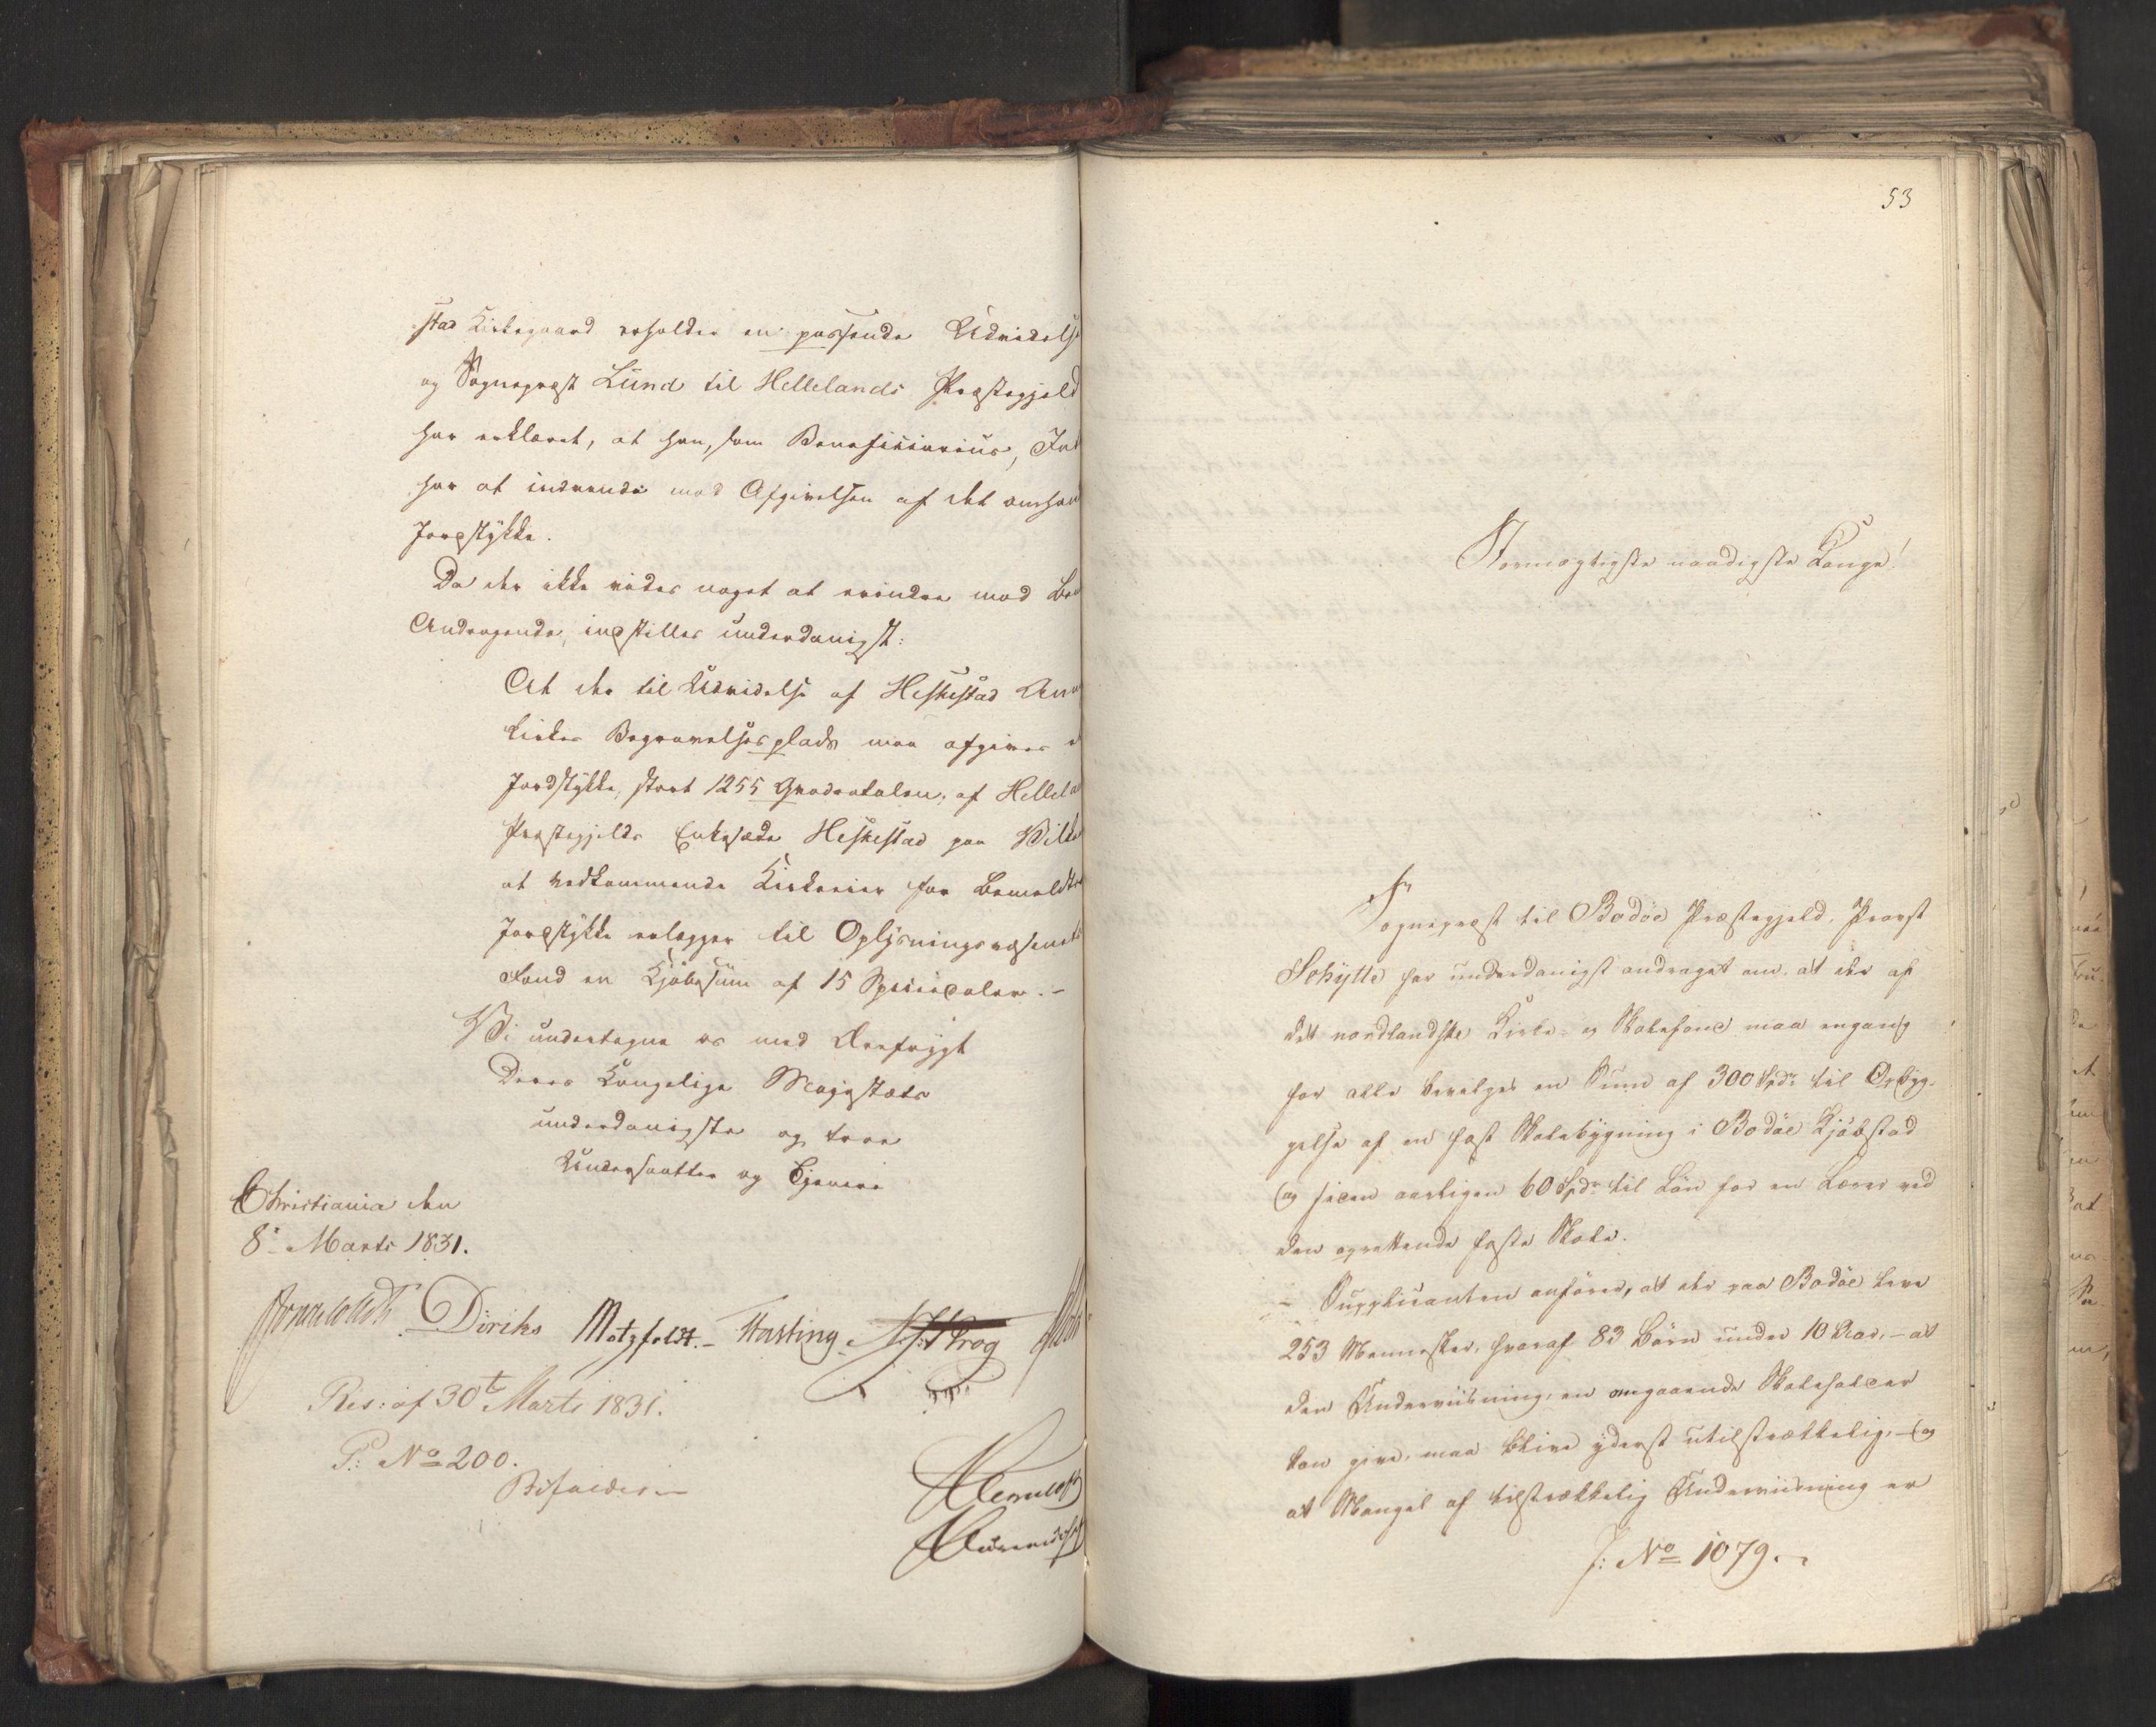 stad Kirkegaard erholder en passende Udvidelse
og Sognepræst Lund til Hellelands Præstegjeld
har erklæret, at han, som Beneficiarius, Intet
har at indvende mod Afgivelsen af det omhan
Jordstykke.
Da der ikke vides noget at erindre mod
Andragende, indstilles underdanigst:
At der til Udvidelse af Heskestad Annex
kirkes Begravelsesplads maa afgives
Jordstykke, stort 1255 Qvadratalen, af Hellela
Præstegjelds Enkesæde Heskestad paa Vilkaar
at vedkommende Kirkeeier for bemeldte
Jordstykke erlægger til Oplysningsvæsenets
Fond en Kjøbesum af 15 Speciedaler.-
Vi undertegne os med Ærefrygt
Deres Kongelige Majestæts
underdanigste og troe
Undersaatter og Tjenere
Christiania den
8de Marts 1831.
Diriks Motzfeldt.- Fasting Krog
Res: af 30te Marts 1831.
P: No 200.
Bifaldes.-
53
Stormægtigste naadigste Konge!
Sognepræst til Bodøe Præstegjeld, Provst
Schytte har underdanigst andraget om, at der af
det nordlandske Kirke- og Skolefond maa engang
for alle bevilges en Sum af 300 Spdr til Opbyg-
gelse af en fast Skolebygning i Bodøe Kjøbstad
og siden aarligen 60 Spdr til Løn for en Lærer ved
den oprettende faste Skole.
- Supplicanten anfører, at der paa Bodøe leve
253 Mennesker, hvoraf 83 Børn under 10 Aar, - at
den Underviisning, en omgaaende Skoleholder
kan give, maa blive yderst utilstrækkelig, - og
at Mangel af tilstrækkelig Underviisning er
J: No 1079.-